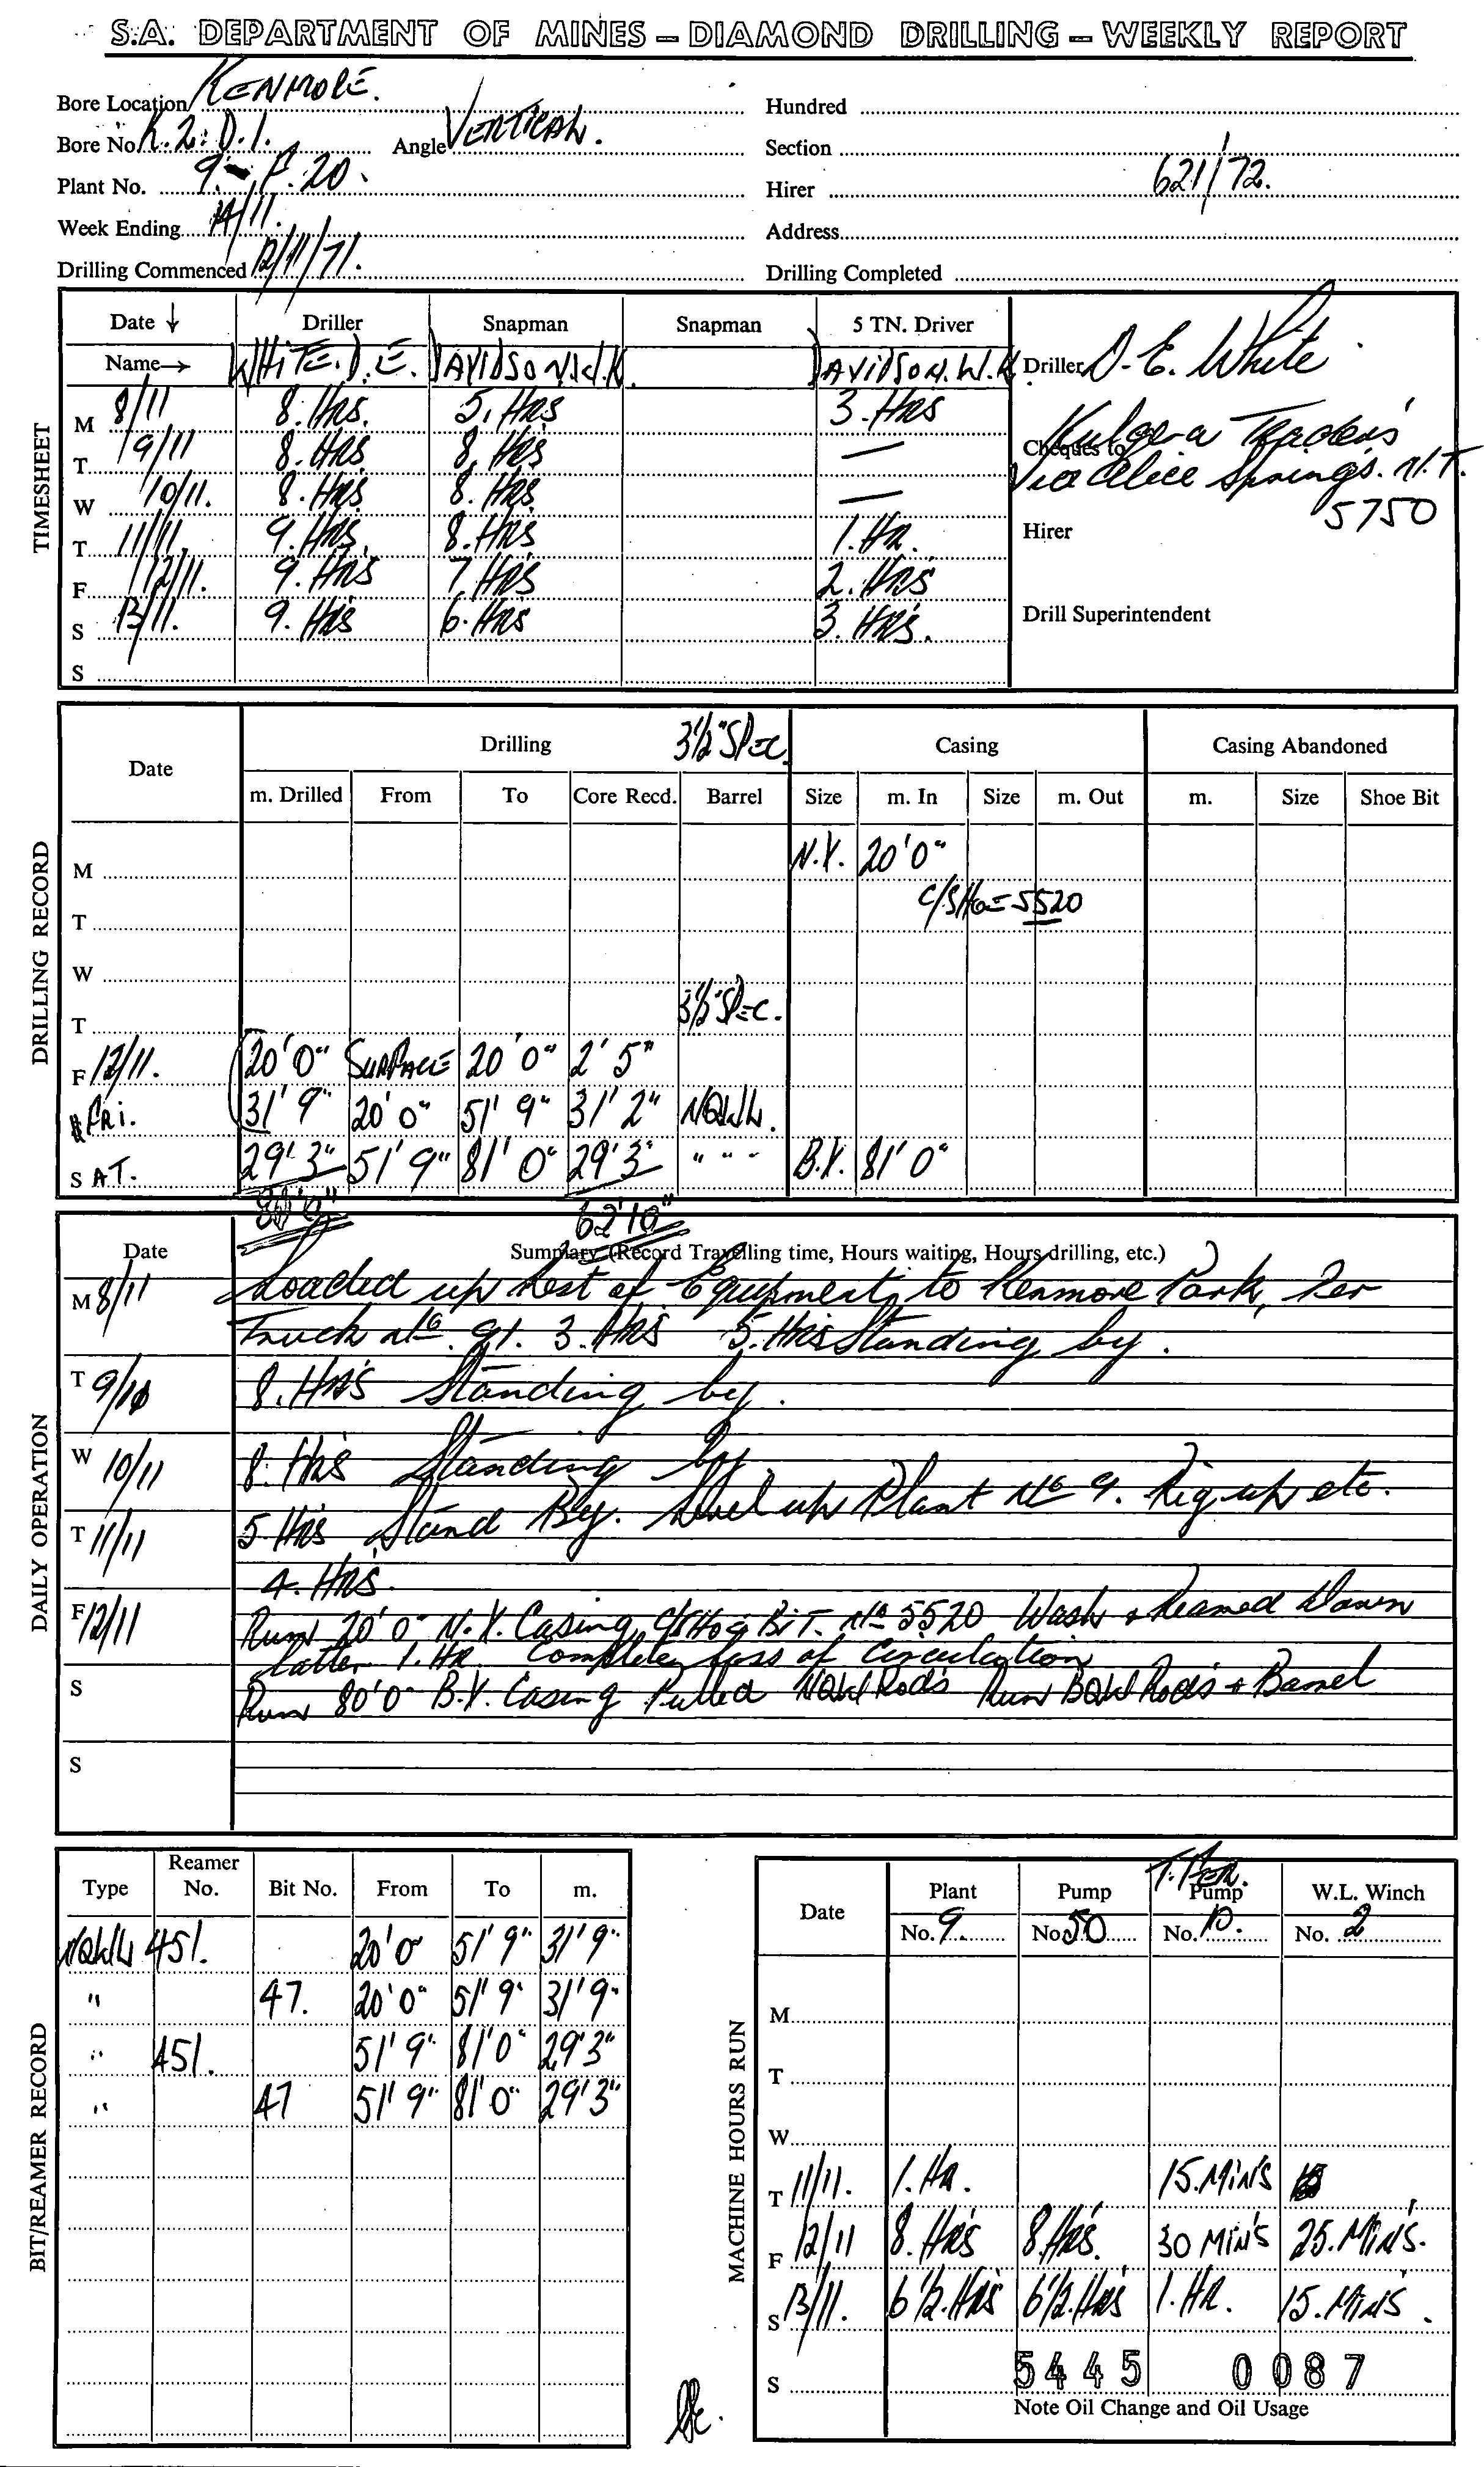 S.A. DEPARTMENT OF MINES – DIAMOND DRILLING – WEEKLY REPORT
Bore Location KENMORE. Hundred
Bore No. K.2.D.1. Angle VERTICAL. Section
Plant No. 9 - F.20. Hirer 621/72.
Week Ending 14/11. Address
Drilling Commenced 12/11/71. Drilling Completed
TIMESHEET
Date ↓ Driller Snapman Snapman 5 TN. Driver
Name→ WHITE.D.E. DAVIDSON.W.K. DAVIDSON.W.K Driller D.E. White
M 8/11 8.HRS. 5.HRS 3.HRS
T 9/11 8.HRS 8.HRS — Cheques to Kulgera Traders
W 10/11. 8.HRS 8.HRS — Via Alice Springs. N.T.
5750
T 11/11. 9.HRS. 8.HRS 1.HR. Hirer
F 12/11. 9.HRS 7.HRS 2.HRS
S 13/11. 9.HRS 6.HRS 3.HRS. Drill Superintendent
S
DRILLING RECORD
Date Drilling 3½" SPEC. Casing Casing Abandoned
m. Drilled From To Core Recd. Barrel Size m. In Size m. Out m. Size Shoe Bit
M N.X. 20'0"
T C/SHOE 5520
W
T 3½" SPEC.
F 12/11. 20'0" SURFACE 20'0" 2'5"
FRI. 31'9" 20'0" 51'9" 31'2" NQWL.
SAT. 29'3" 51'9" 81'0" 29'3" " " " B.X. 81'0"
62'10"
DAILY OPERATION
Date Summary (Record Travelling time, Hours waiting, Hours drilling, etc.)
M 8/11 Loaded up Rest of Equipment to Kenmore Park, Per
Truck No 91. 3.HRS 5.HRS Standing by.
T 9/11 8.HRS Standing by.
W 10/11 8.HRS Standing by.
T 11/11 5 HRS Stand By. Level up Plant No 9. Rig up etc.
4.HRS.
F 12/11 Run 20'0" N.X. Casing C/SHOE BIT. No 5520 Wash & Reamed Down
latter 1.HR Complete loss of Circulation
S Run 80'0" B.X. Casing Pulled NQWL Rods Run BQWL Rods & Barrel
S
BIT/REAMER RECORD
Type Reamer No. Bit No. From To m.
NQWL 451. 20'0" 51'9" 31'9"
" 47. 20'0" 51'9" 31'9"
" 451. 51'9" 81'0" 29'3"
" 47 51'9" 81'0" 29'3"
MACHINE HOURS RUN
Date Plant Pump Pump W.L. Winch
No. 9. No. 50 No. 10. No. 2
M
T
W
T 11/11. 1.HR. 15.MINS
F 12/11 8.HRS 8.HRS. 30 MINS 25.MINS.
S 13/11. 6½.HRS 6½.HRS 1.HR. 15.MINS.
S 5445 0087
Note Oil Change and Oil Usage